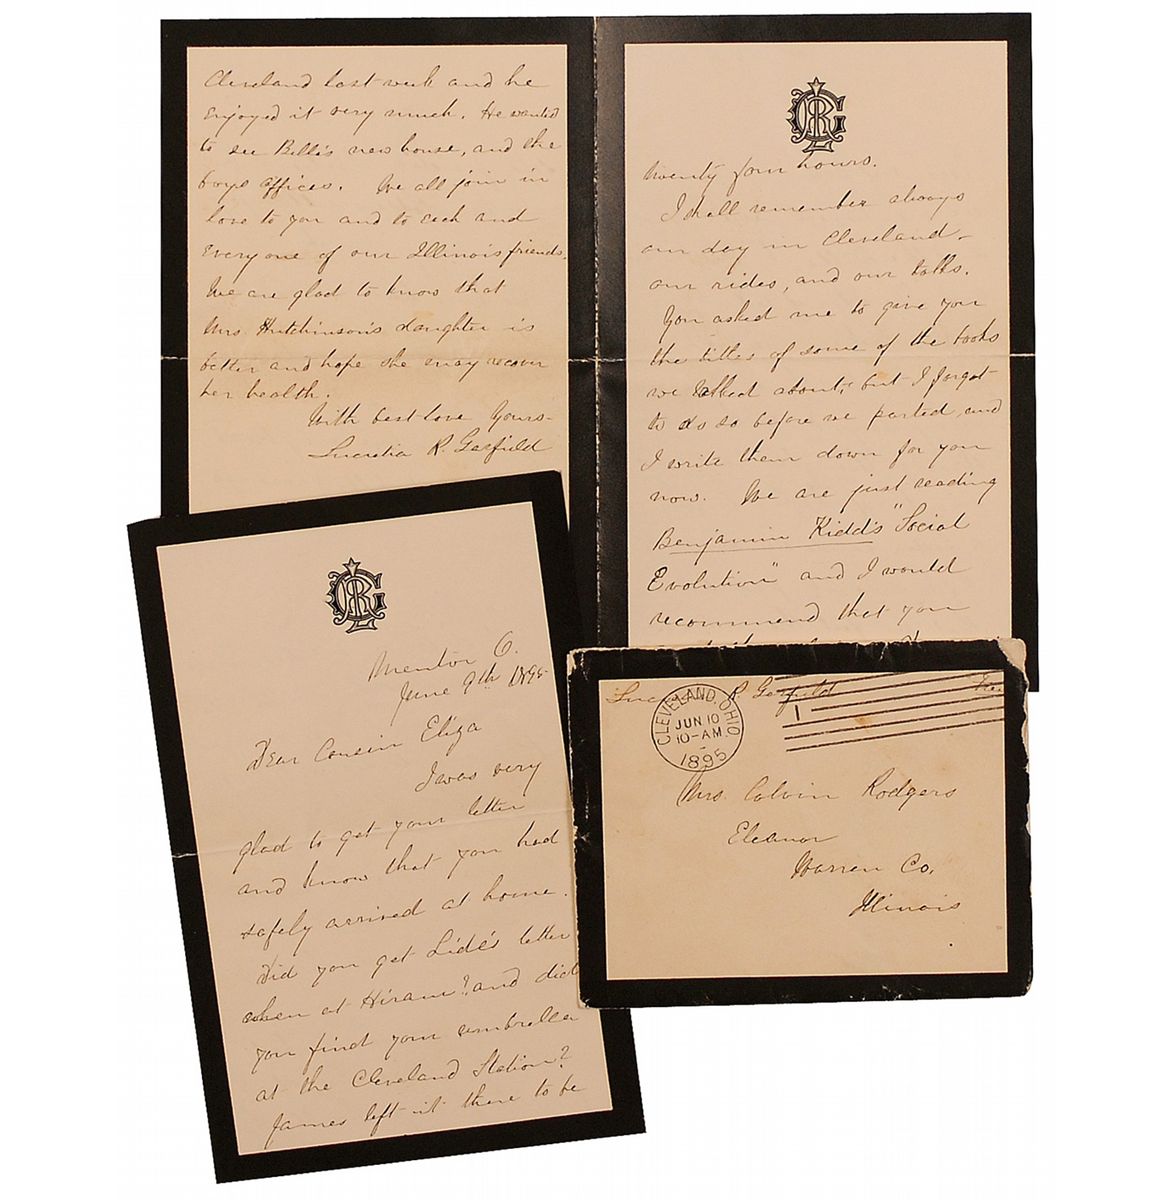 Mentor O.
June 9th 1895
Dear Cousin Eliza
I was very
glad to get your letter
and know that you had
safely arrived at home.
Did you get Lide's letter
when at Hiram? and did
you find your umbrella
at the Cleveland Station?
James left it there to be
twenty four hours.
I shall remember always
our day in Cleveland -
our rides, and our talks.
You asked me to give you
the titles of some of the books
we talked about, but I forgot
to do so before we parted, and
I write them down for you
now. We are just reading
Benjamin Kidd's "Social
Evolution" and I would
recommend that you
Cleveland last week and he
enjoyed it very much. He wanted
to see Bill's new house, and the
boys offices. We all join in
love to you and to each and
everyone of our Illinois friends.
We are glad to know that
Mrs Hutchinson's daughter is
better and hope she may recover
her health.
With best love Yours-
Lucretia R. Garfield
Lucretia R. Garfield
CLEVELAND, OHIO
JUN 10
10-AM
1895
1
Mrs. Calvin Rodgers
Eleanor
Warren Co.
Illinois